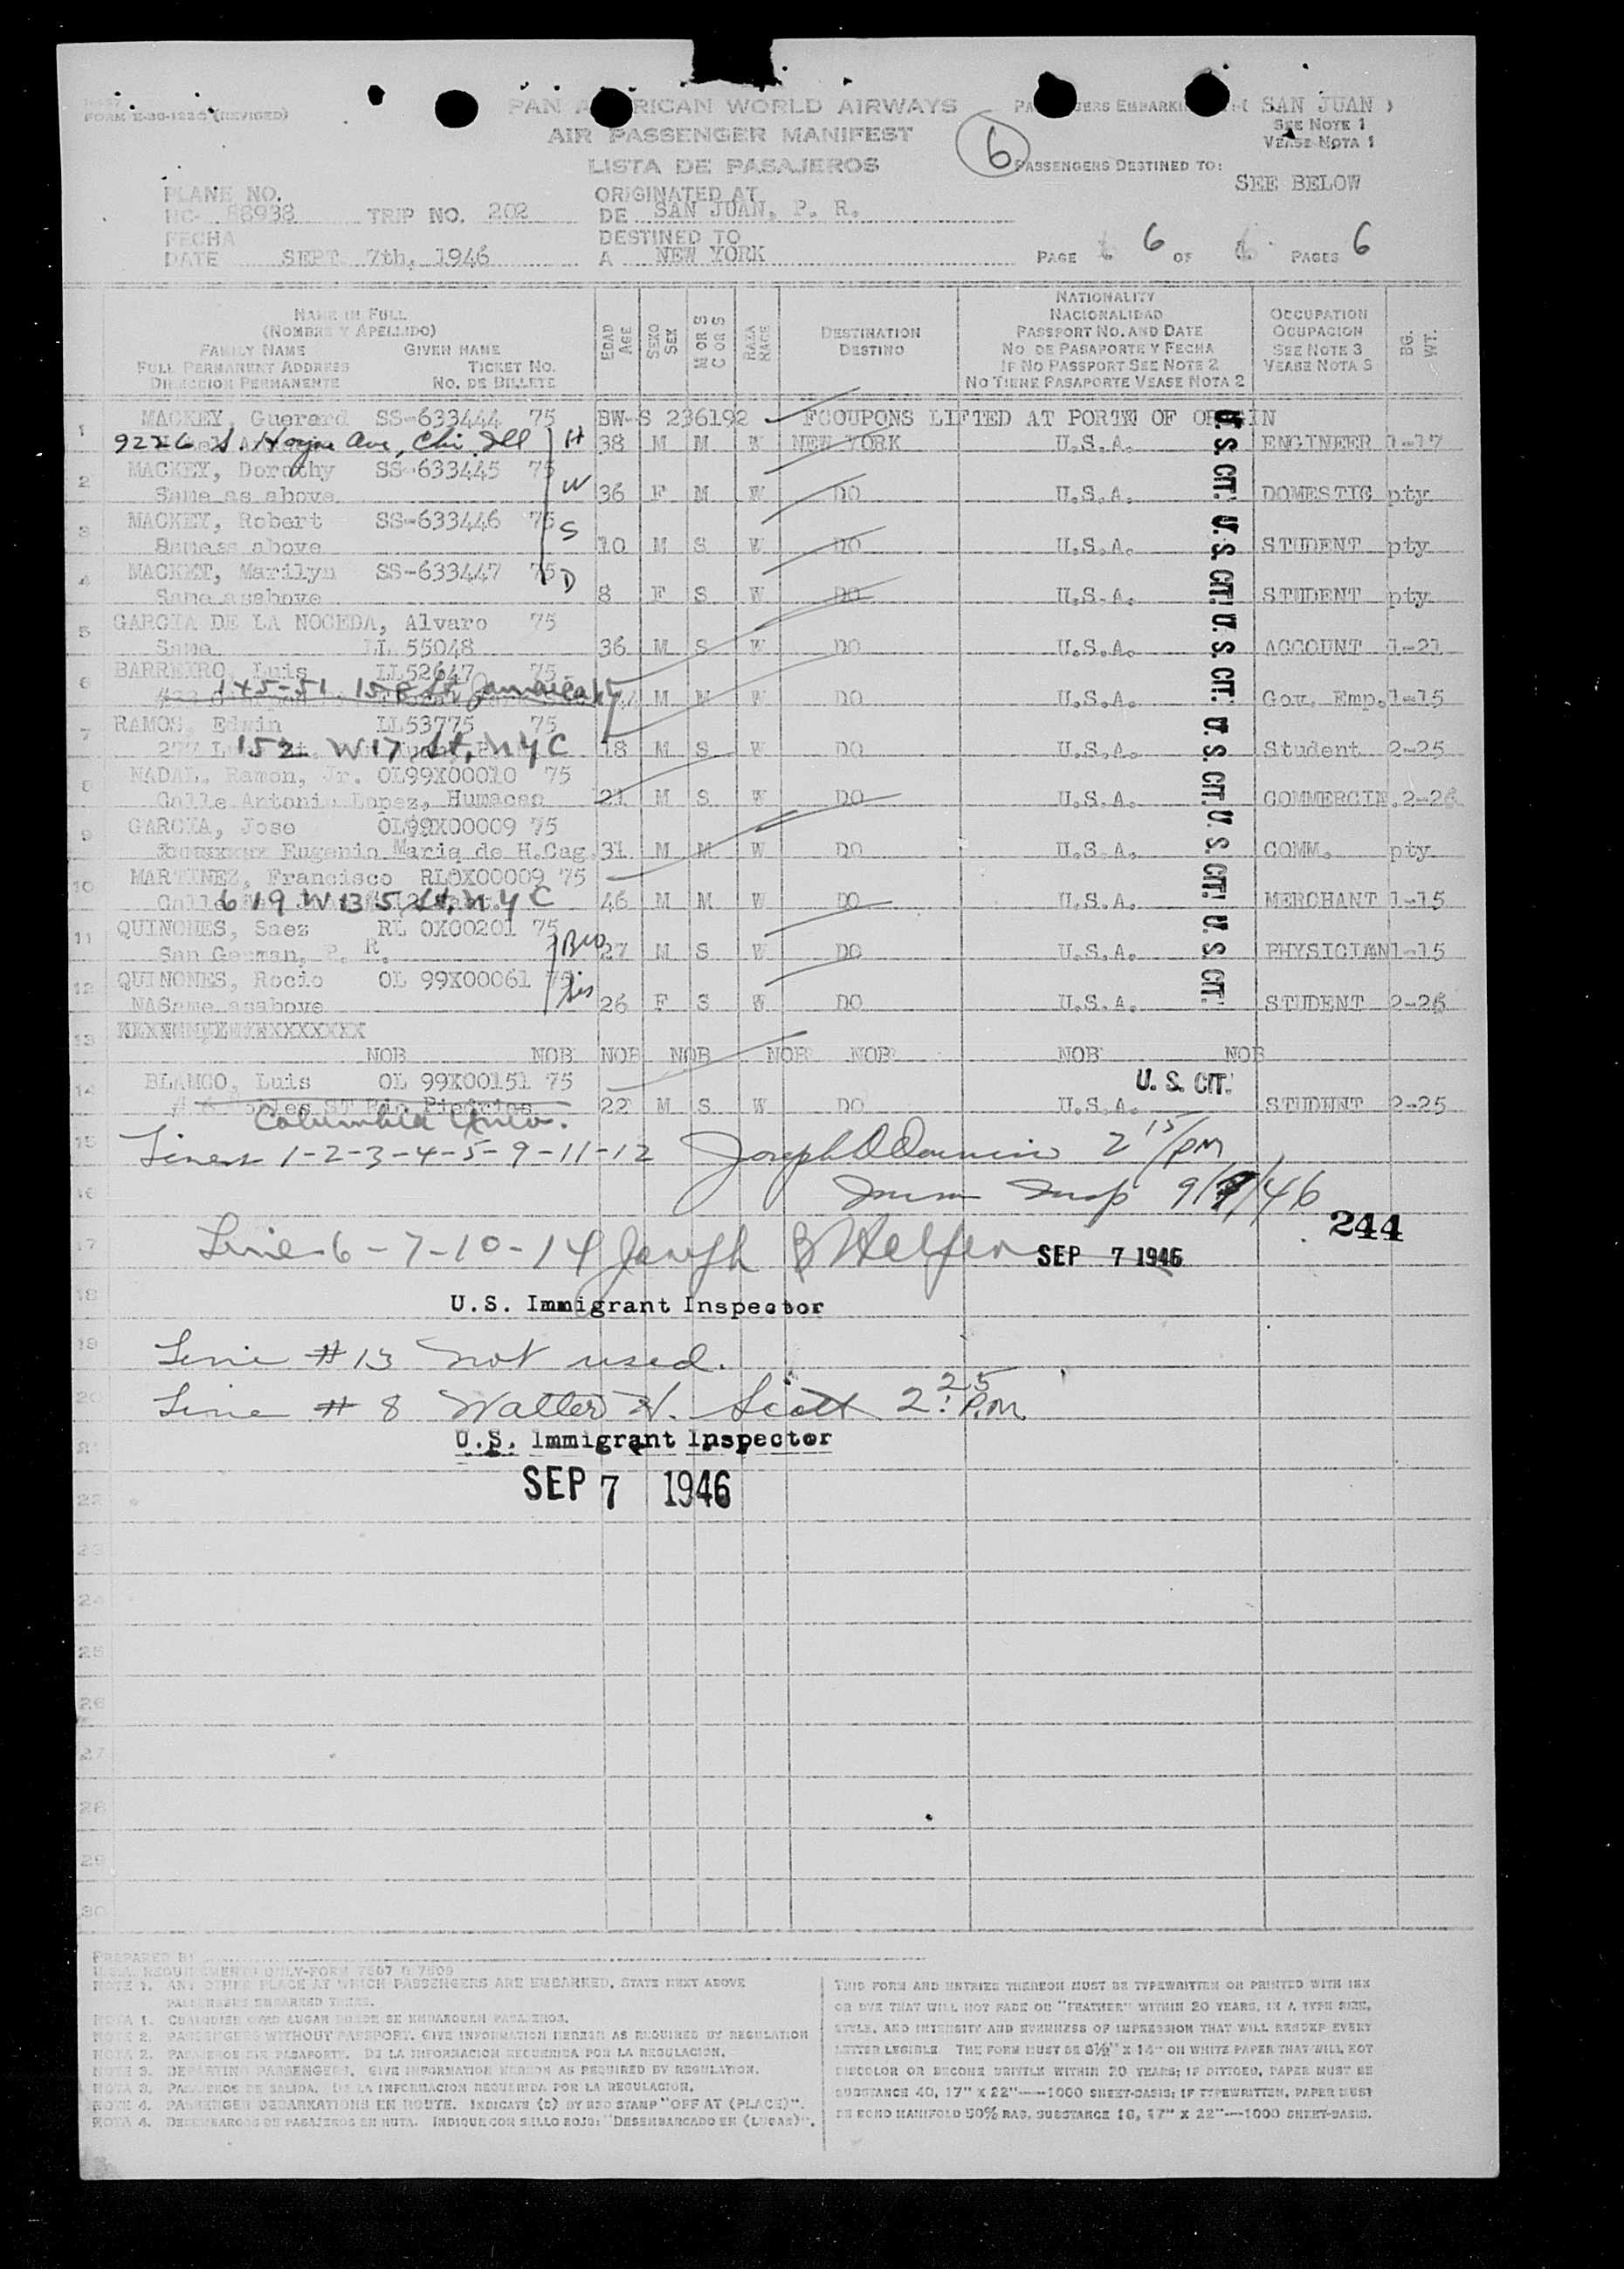 FORM E-30-122C (REVISED)
PAN AMERICAN WORLD AIRWAYS
AIR PASSENGER MANIFEST
LISTA DE PASAJEROS
6
SAN JUAN )
SEE NOTE 1
VEASE NOTA 1
PASSENGERS DESTINED TO:
SEE BELOW
PLANE NO.
NC- 88938 TRIP NO. 202
ORIGINATED AT
DE SAN JUAN, P. R.
FECHA
DATE SEPT. 7th, 1946
DESTINED TO
A NEW YORK
PAGE 6 OF PAGES 6
NAME IN FULL
(NOMBRE Y APELLIDO)
FAMILY NAME GIVEN NAME
FULL PERMANENT ADDRESS TICKET NO.
DIRECCION PERMANENTE NO. DE BILLETE
EDAD AGE
SEXO SEX
M OR S C OR S
RAZA RACE
DESTINATION
DESTINO
NATIONALITY
NACIONALIDAD
PASSPORT NO. AND DATE
NO DE PASAPORTE Y FECHA
IF NO PASSPORT SEE NOTE 2
NO TIENE PASAPORTE VEASE NOTA 2
OCCUPATION
OCUPACION
SEE NOTE 3
VEASE NOTA 3
BG. WT.
1 MACKEY, Guerard SS-633444 75 BW-S 236192 FCOUPONS LIFTED AT PORTW OF ORIGIN
9226 S. Hoyne Ave, Chi. Ill H 38 M M W NEW YORK U.S.A. U.S. CIT. ENGINEER 1-17
2 MACKEY, Dorothy SS-633445 75
Same as above W 36 F M W DO U.S.A. DOMESTIC pty
3 MACKEY, Robert SS-633446 75
Sameas above S 10 M S W DO U.S.A. U.S. CIT. STUDENT pty
4 MACKEY, Marilyn SS-633447 75
Same asabove D 8 F S W DO U.S.A. STUDENT pty
5 GARCIA DE LA NOCEDA, Alvaro 75
Same LL 55048 36 M S W DO U.S.A. U.S. CIT. ACCOUNT 1-21
6 BARREIRO, Luis LL52647 75
145-51, 158 St Jamaica M M W DO U.S.A. Gov. Emp. 1-15
7 RAMOS, Edwin LL53775 75
152 W 17 St, N Y C 18 M S W DO U.S.A. U.S. CIT. Student 2-25
8 NADAL, Ramon, Jr. OL99X00010 75
Calle Antonio Lopez, Humacao 21 M S W DO U.S.A. COMMERCIA. 2-26
9 GARCIA, Jose OL99X00009 75
Eugenio Maria de H.Cag. 31 M M W DO U.S.A. U.S. CIT. COMM. pty
10 MARTINEZ, Francisco RLOX00009 75
619 W 135 St, N Y C 46 M M W DO U.S.A. MERCHANT 1-15
11 QUINONES, Saez RL OX00201 75
San German, P. R. Bro 27 M S W DO U.S.A. U.S. CIT. PHYSICIAN 1-15
12 QUINONES, Rocio OL 99X00061 75
NASame asabove Sis 26 F S W DO U.S.A. STUDENT 2-26
13
NOB NOB NOB NOB NOB NOB NOB NOB
14 BLANCO, Luis OL 99X00151 75 U. S. CIT.
22 M S W DO U.S.A. STUDENT 2-25
Columbia Univ.
15 Lines 1-2-3-4-5-9-11-12 Joseph D 2 15/PM
16 Imm Insp 9/7/46
244
17 Line 6-7-10-14 Joseph B Helfen SEP 7 1946
18 U.S. Immigrant Inspector
19 Line # 13 not used.
20 Line # 8 Walter H. Scott 2:25 P.M.
21 U.S. Immigrant Inspector
22 SEP 7 1946
23
24
25
26
27
28
29
30
PREPARED BY
U.S.A. REQUIREMENTS ONLY-FORM 7507 & 7509
NOTE 1. ANY OTHER PLACE AT WHICH PASSENGERS ARE EMBARKED, STATE NEXT ABOVE
PASSENGERS EMBARKED THERE.
NOTA 1. CUALQUIER OTRO LUGAR DONDE SE EMBARQUEN PASAJEROS.
NOTE 2. PASSENGERS WITHOUT PASSPORT. GIVE INFORMATION HEREIN AS REQUIRED BY REGULATION
NOTA 2. PASAJEROS SIN PASAPORTE. DE LA INFORMACION REQUERIDA POR LA REGULACION.
NOTE 3. DEPARTING PASSENGERS. GIVE INFORMATION HEREON AS REQUIRED BY REGULATION.
NOTA 3. PASAJEROS DE SALIDA. DE LA INFORMACION REQUERIDA POR LA REGULACION.
NOTE 4. PASSENGER DEBARKATIONS EN ROUTE. INDICATE (D) BY RED STAMP "OFF AT (PLACE)".
NOTA 4. DESEMBARCOS DE PASAJEROS EN RUTA. INDIQUE CON SELLO ROJO: "DESEMBARCADO EN (LUGAR)".
THIS FORM AND ENTRIES THEREON MUST BE TYPEWRITTEN OR PRINTED WITH INK
OR DYE THAT WILL NOT FADE OR "FEATHER" WITHIN 20 YEARS, IN A TYPE SIZE,
STYLE, AND INTENSITY AND EVENNESS OF IMPRESSION THAT WILL RENDER EVERY
LETTER LEGIBLE. THE FORM MUST BE 8½" X 14" ON WHITE PAPER THAT WILL NOT
DISCOLOR OR BECOME BRITTLE WITHIN 20 YEARS; IF DITTOED, PAPER MUST BE
SUBSTANCE 40, 17" X 22"—1000 SHEET-BASIS; IF TYPEWRITTEN, PAPER MUST
BE BOND MANIFOLD 50% RAG, SUBSTANCE 16, 17" X 22"—1000 SHEET-BASIS.